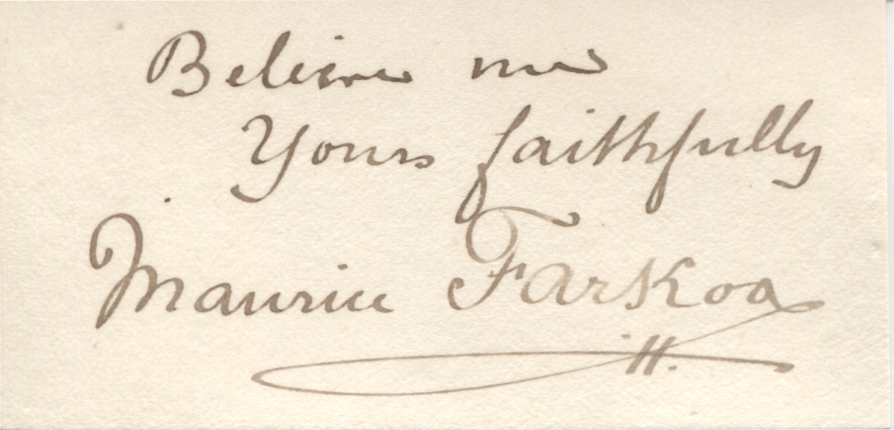 Believe me
Yours faithfully
Maurice Farkoa